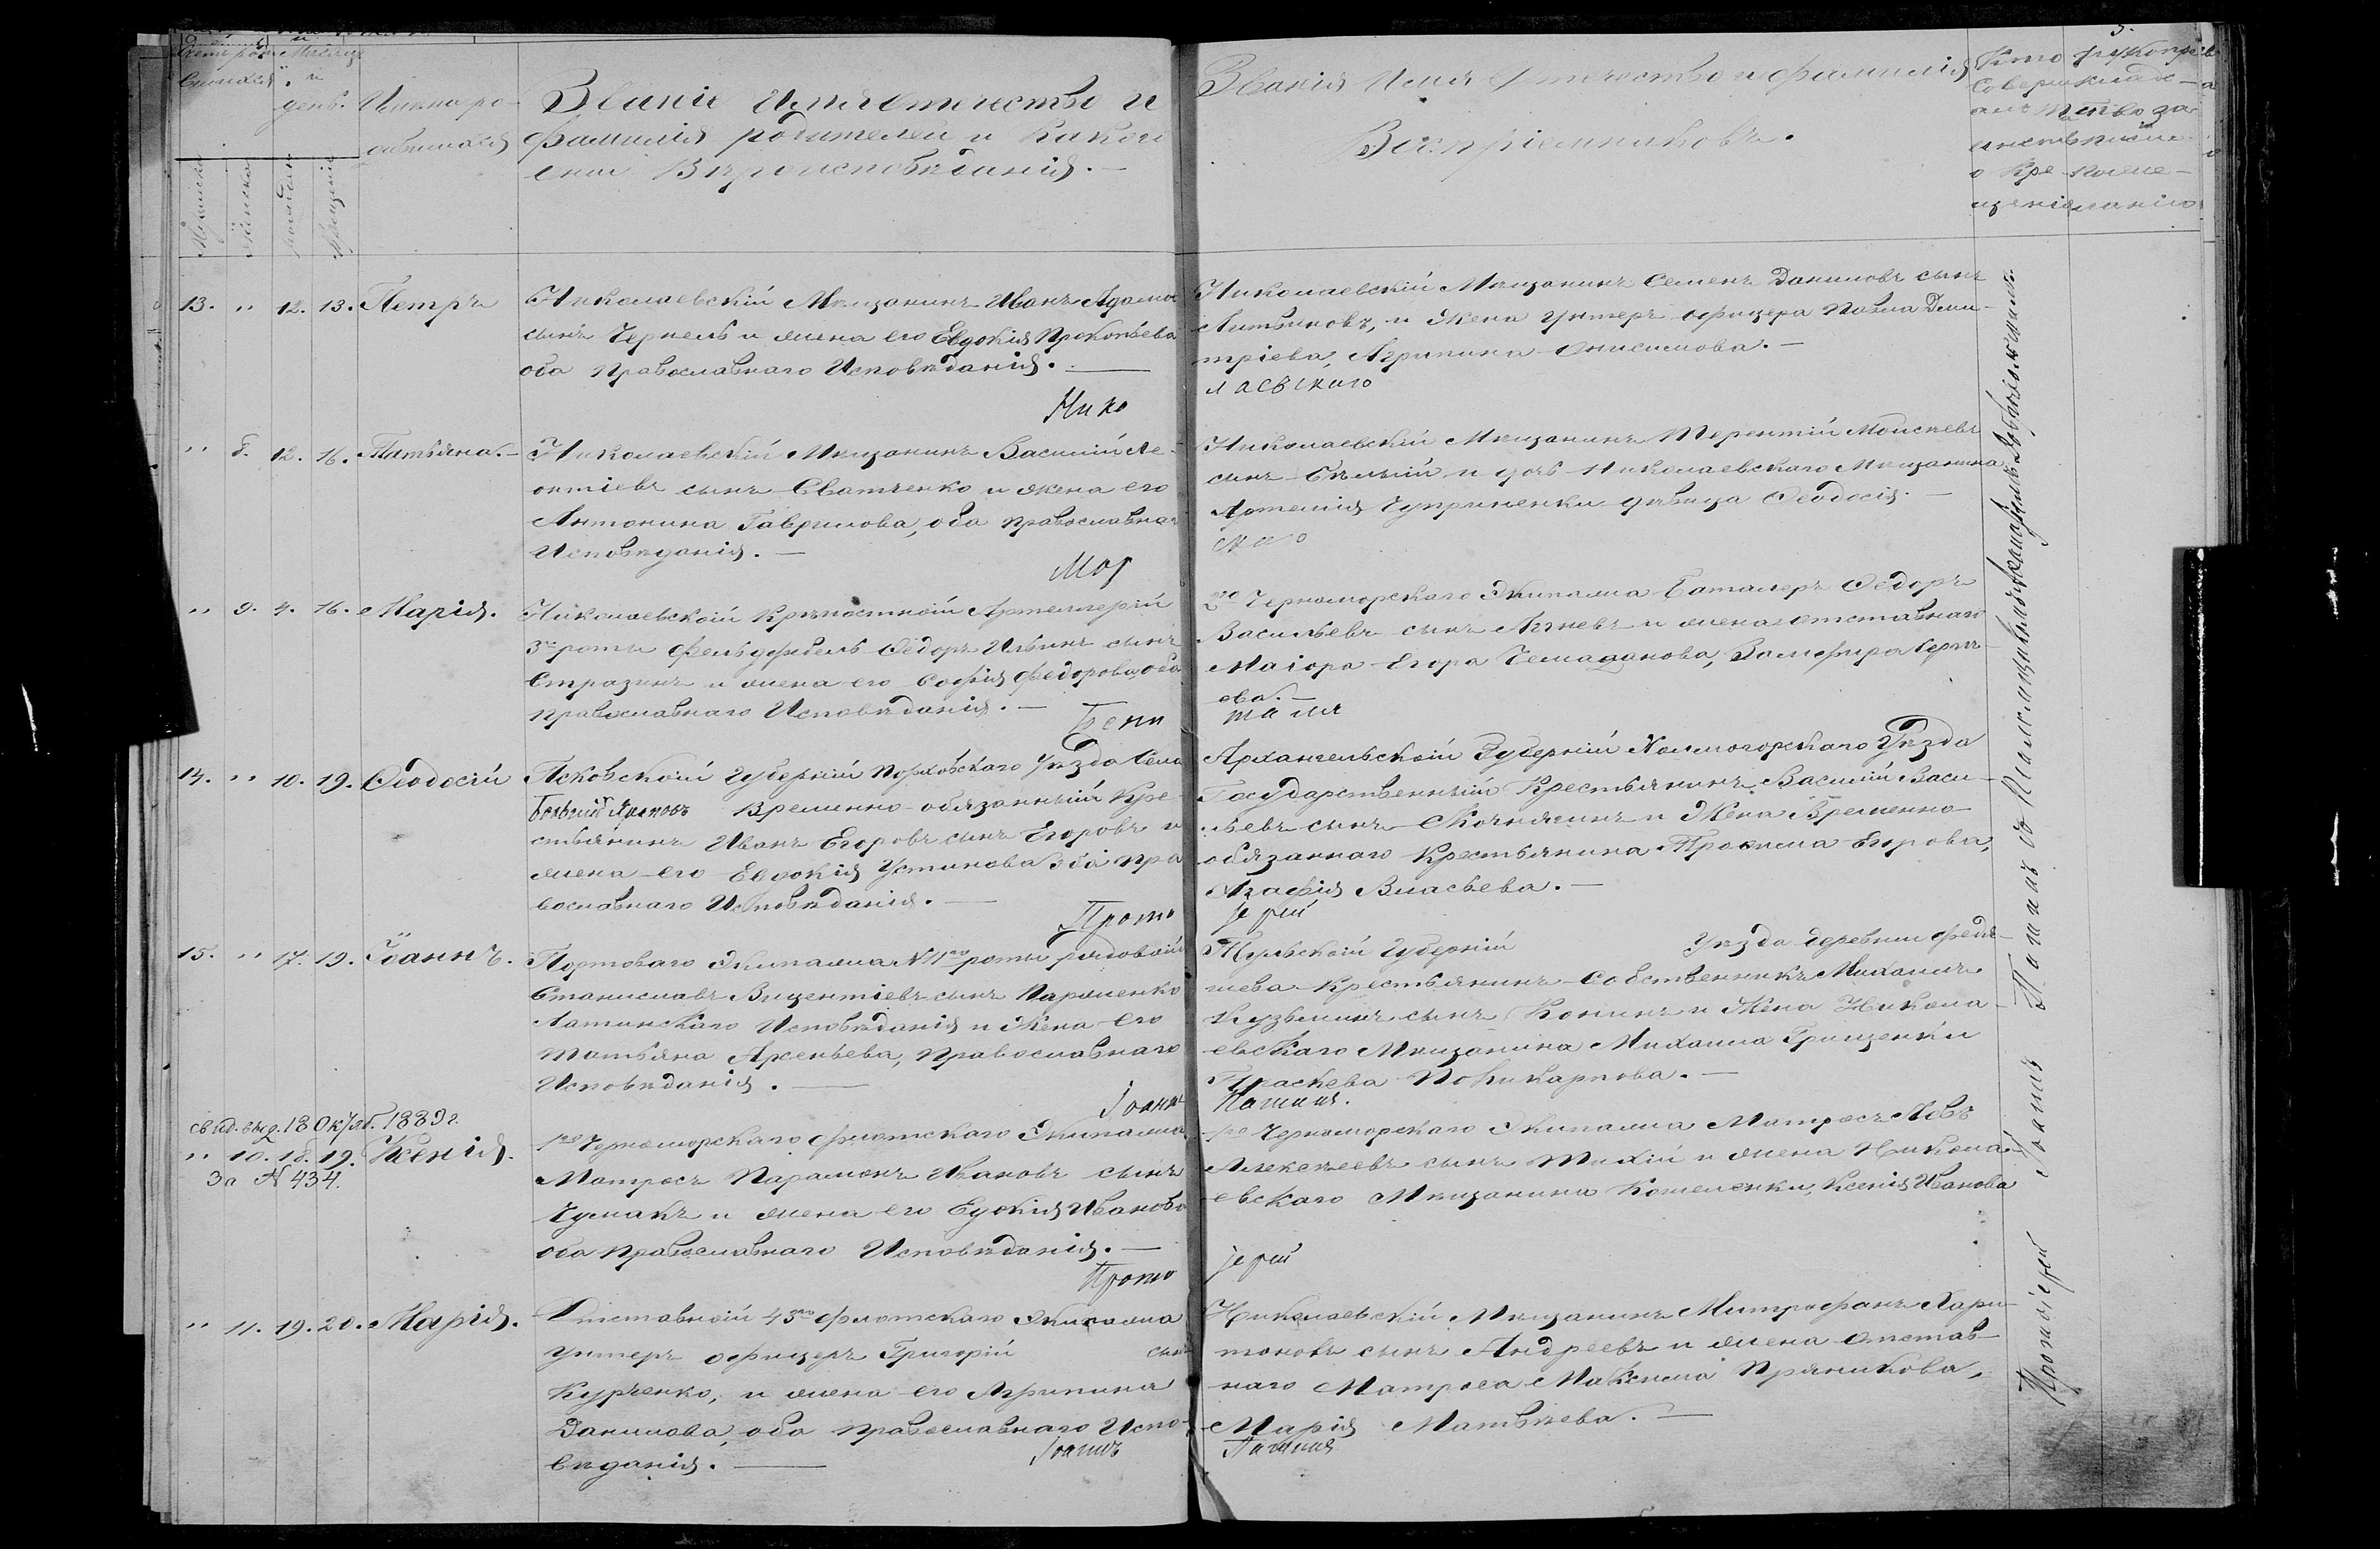 Званіе Имя Отчество и
фамилія родителей и какого
они Вѣроисповѣданія. —
Званія Имя Отчество и фамилія
Воспріемниковъ.
Кто
Соверш
алъ Та
инств
о Кре
щенія
Рукопри
кладс
тво за
писи
по же
ланію
день.
Имена ро-
дившихся
Мужеска
Женска
рожденія
крещенія
13. " 12. 13. Петръ
Николаевскій Мѣщанинъ Иванъ Адамов
сынъ Чернель и жена его Евдокія Прокопьева
оба Православнаго Исповѣданія. —
Николаевскій Мѣщанинъ Семенъ Даниловъ сынъ
Литвиновъ, и Жена унтеръ офицера Павла Дми-
тріева, Агрипина Онисимова. —
Нико
лаевскаго
" 8. 12. 16. Татьяна. —
Николаевскій Мѣщанинъ Василій Ле-
онтіевъ сынъ Сватченко и жена его
Антонина Гаврилова, оба православнаг
Исповѣданія. —
Николаевскій Мѣщанинъ Терентій Моисеевъ
сынъ Бѣлый и дочь Николаевскаго Мѣщанина
Артемія Чуприненки дѣвица Феодосія. —
Мор
скаго
" 9. 4. 16. Марія.
Николаевской Крѣпостной Артиллеріи
3й роты Фельдфебель Федоръ Ильинъ сынъ
Стразинъ и жена его Софія Федорова, оба
православнаго Исповѣданія. —
2го Черноморскаго Экипажа Баталеръ Федоръ
Васильевъ сынъ Агневъ и жена отставнаго
Маіора Егора Чемаданова, Замефира Серг
ева. —
14. " 10. 19. Феодосій
Псковской Губерніи Порховскаго уѣзда Села
Временно-обязанный Кре-
стьянинъ Иванъ Егоровъ сынъ Егоровъ и
жена его Евдокія Устинова Оба пра
вославнаго Исповѣданія. —
Архангельской Губерніи Холмогорскаго Уѣзда
Государственный Крестьянинъ Василій Васи-
льевъ сынъ и Жена Временно-
обязаннаго Крестьянина Егорова,
Агафія Власьева. —
Прото
іерей
15. " 17. 19. Іоаннъ.
Портоваго Экипажа №11й роты рядовой
Станиславъ Вицентіевъ сынъ Парменко
Латинскаго Исповѣданія и Жена его
Татьяна Арсеньева, Православнаго
Исповѣданія. —
Тульской Губерніи Уѣзда деревни Федя-
шева Крестьянинъ Собственникъ Михаилъ
Кузьминъ сынъ Конинъ и Жена Никола-
евскаго Мѣщанина Михаила Грищенки
Праскева Поликарпова. —
Іоаннъ
свид. выд. 1889 г.
" 10. 18. 19. Ксенія.
За №434.
1го Черноморскаго флотскаго Экипажа
Матросъ Парамонъ Ивановъ сынъ
Чумакъ и жена его Едокія Иванова
оба православнаго Исповѣданія. —
1го Черноморскаго Экипажа Матросъ Левъ
Алексѣевъ сынъ Тихій и жена Никола-
евскаго Мѣщанина Кошеленки, Ксенія Иванова
Прото
іерей
" 11. 19. 20. Марія.
Отставной 43го флотскаго Экипажа
унтеръ офицеръ Григорій сынъ
Курченко, и жена его Агрипина
Данилова, оба православнаго Испо-
вѣданія. —
Николаевскій Мѣщанинъ Митрофанъ Хари-
тоновъ сынъ Андреевъ и жена отстав-
наго Матроса Максима Пряникова,
Марія Матвѣева. —
Іоаннъ
Протоіерей Іоаннъ